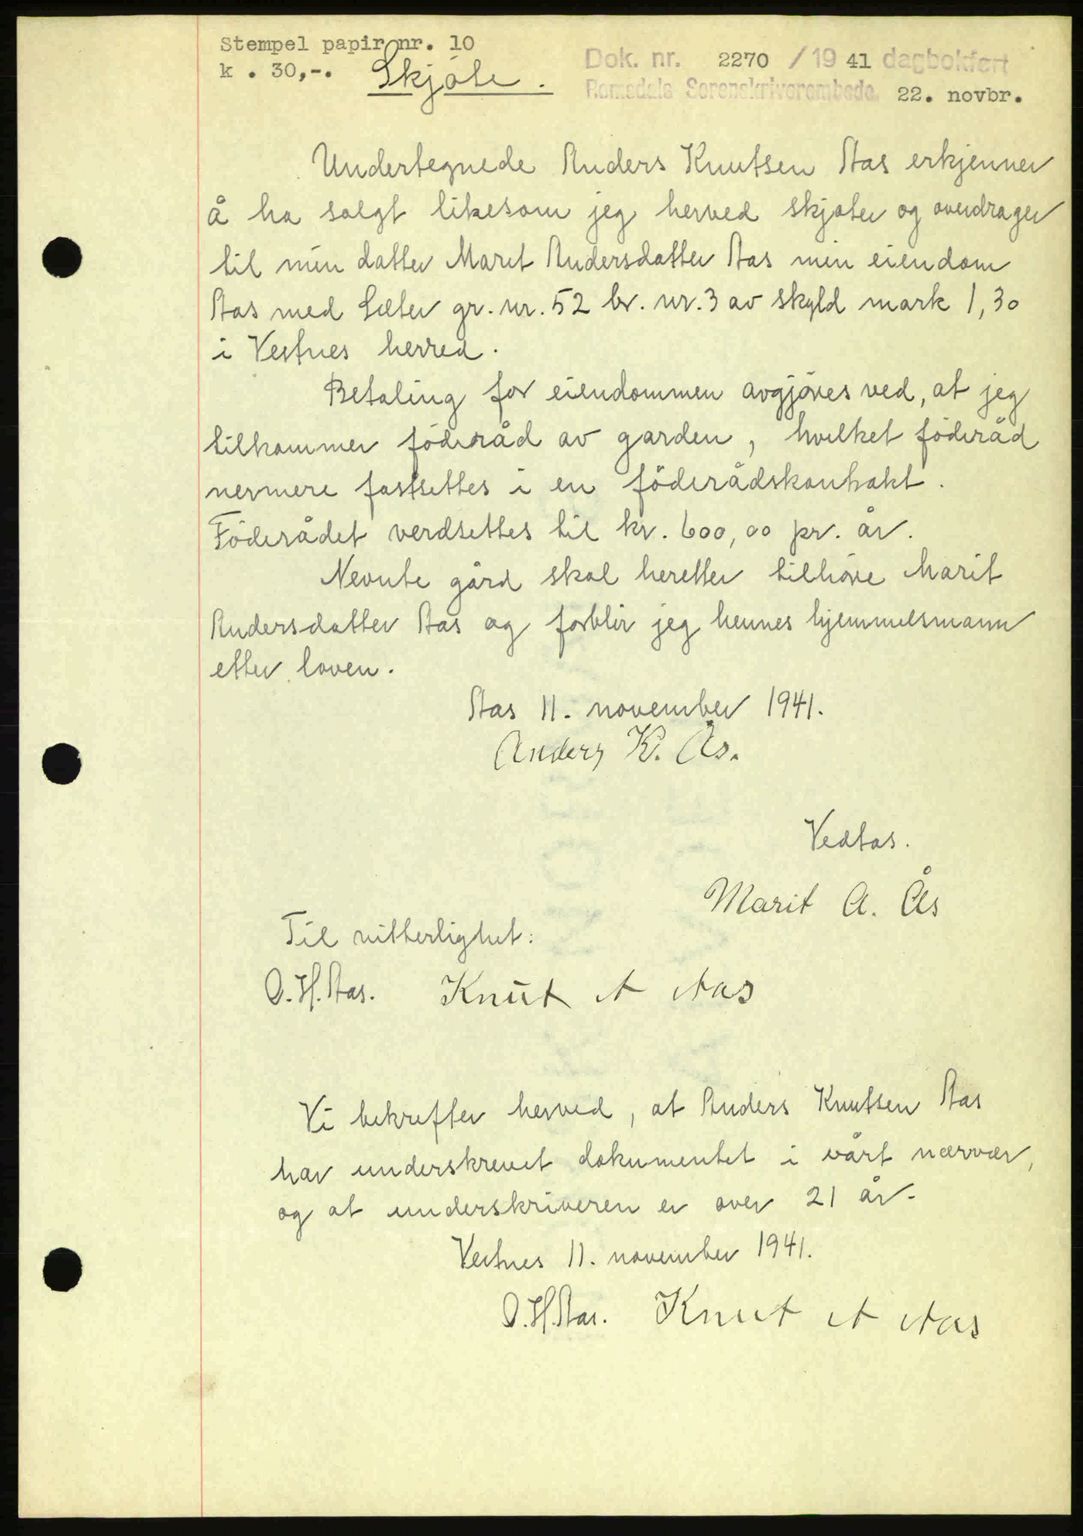 Stempel papir nr. 10
k . 30,-.
Skjøte.
Dok. nr. 2270 / 19 41 dagbokført
Romsdals Sorenskriverembede. 22. novbr.
Undertegnede Anders Knutsen Aas erkjenner
å ha solgt likesom jeg herved skjøter og overdrager
til min datter Marit Andersdatter Aas min eiendom
Aas med Sæter gr. nr. 52 br. nr. 3 av skyld mark 1,30
i Vestnes herred.
Betaling for eiendommen avgjöres ved, at jeg
tilkommer föderåd av garden, hvilket föderåd
nermere fastsettes i en föderådskontrakt.
Föderådet verdsettes til kr. 600,00 pr. år.
Nevnte gård skal heretter tilhöre Marit
Andersdatter Aas og forblir jeg hennes hjemmelsmann
etter loven.
Aas 11. november 1941.
Anders K. Ås.
Vedtas.
Marit A. Ås
Til vitterlighet:
O. H. Aas. Knut A Aas
Vi bekrefter herved, at Anders Knutsen Aas
har underskrevet dokumentet i vårt nærvær,
og at underskriveren er over 21 år.
Vestnes 11. november 1941.
O. H. Aas. Knut A Aas